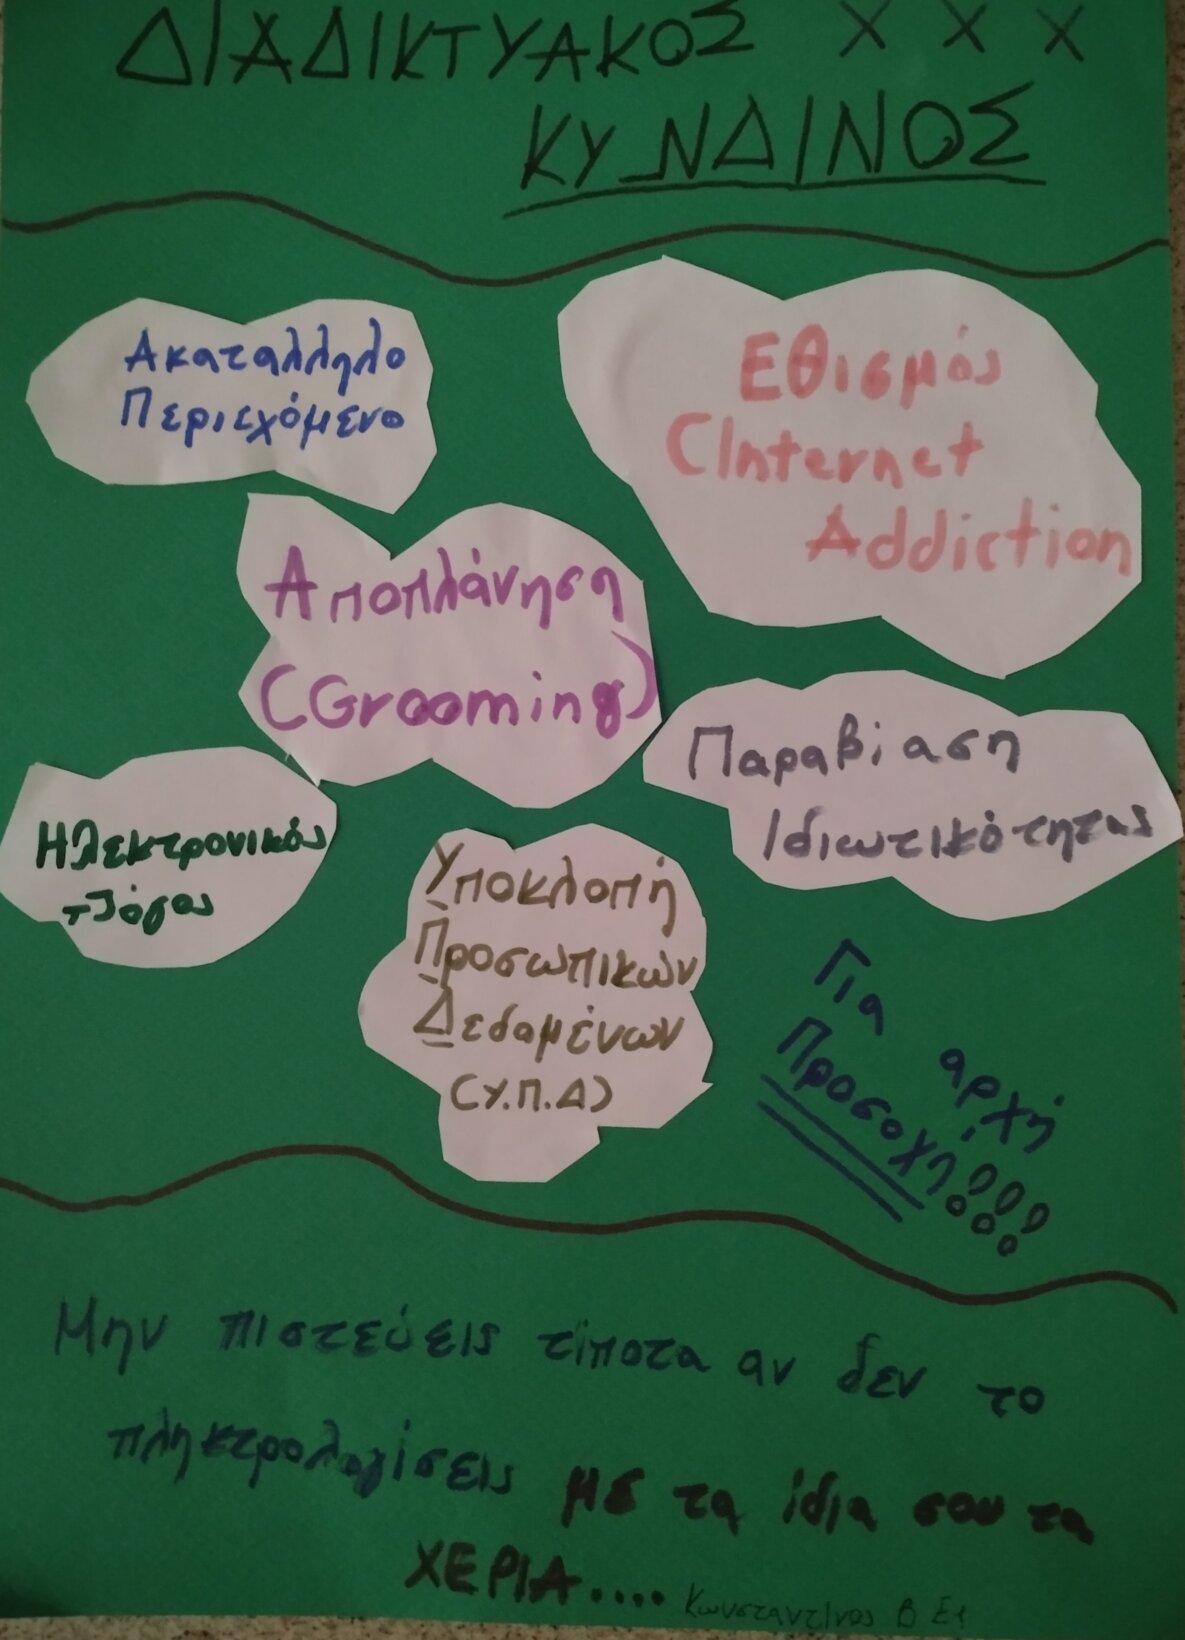 ΔΙΑΔΙΚΤΥΑΚΟΣ Χ Χ Χ
ΚΥΝΔΙΝΟΣ
Ακαταλληλο
Περιεχόμενο
Εθισμός
(Internet
Addiction
Αποπλάνηση
(Grooming)
Παραβίαση
Ιδιωτικότητας
Ηλεκτρονικός
τζόγος
Υποκλοπή
Προσωπικών
Δεδομένων
(Υ.Π.Δ)
Για αρχή
Προσοχή!!!
Μην πιστεύεις τίποτα αν δεν το
πληκτρολογίσεις με τα ίδια σου τα
ΧΕΡΙΑ....
Κωνσταντίνος Β Ε1